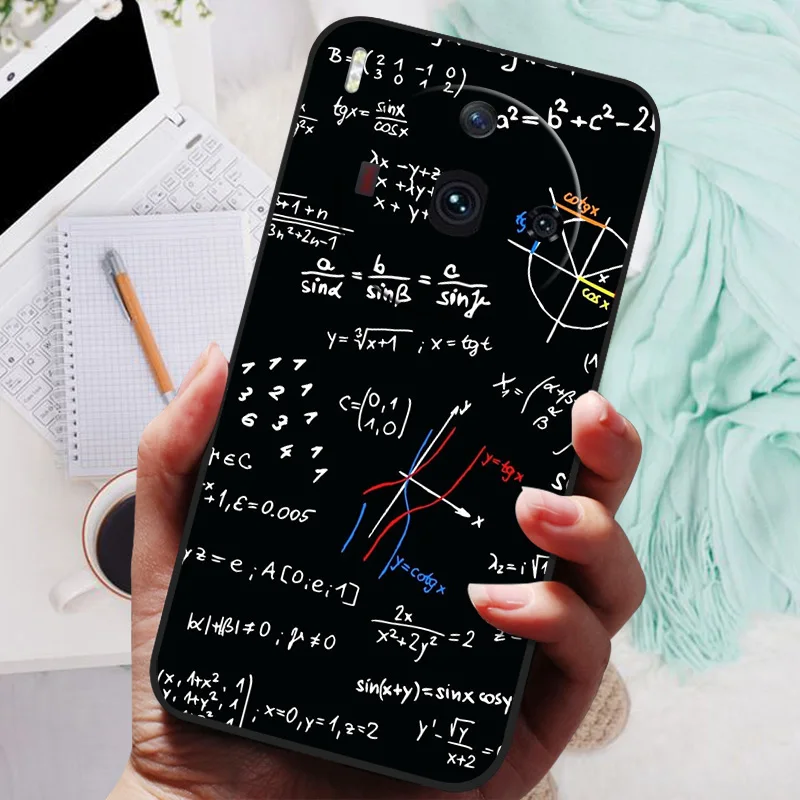 B=(2 1 -1 0
3 0 1 2)
tgx = sinx
cosx
a² = b² + c² - 2
λx - y + z
x + λy +
x + y +
+1+n
3n²+2n-1
cotgx
tg
x
cosx
a/sinα = b/sinβ = c/sinγ
y = ³√x+1 ; x = tgt
1 1 1
3 2 1
6 3 1
4 1
1
C=(0,1
1,0)
X₁ = (α+β
α
β
y
x
y=tgx
y=cotgx
M∈C
+1, ε=0.005
yz = e ; A[0;e;1]
λ₂ = i√1
|α|+|β|≠0 ; γ≠0
2x
x²+2y² = 2
z
x, 1+x², 1
y, 1+y², 1
; x=0, y=1, z=2
sin(x+y) = sinx cosy
y' - √y
x+2 =